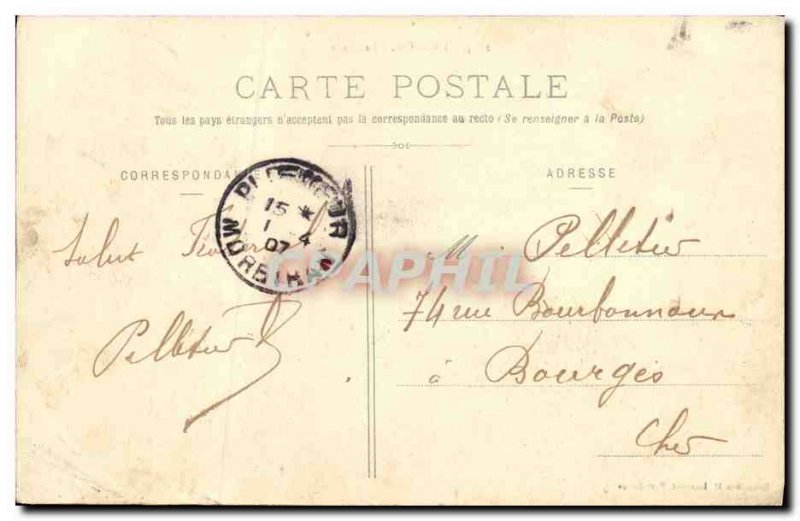 CARTE POSTALE
Tous les pays étrangers n'acceptent pas la correspondance au recto (Se renseigner à la Poste)
CORRESPONDANCE
ADRESSE
15 *
1 4
07
MORBIHAN
Salut
Pelletier
M. Pelletier
74 rue Bourbonnoux
à Bourges
Cher
CPAPHIL